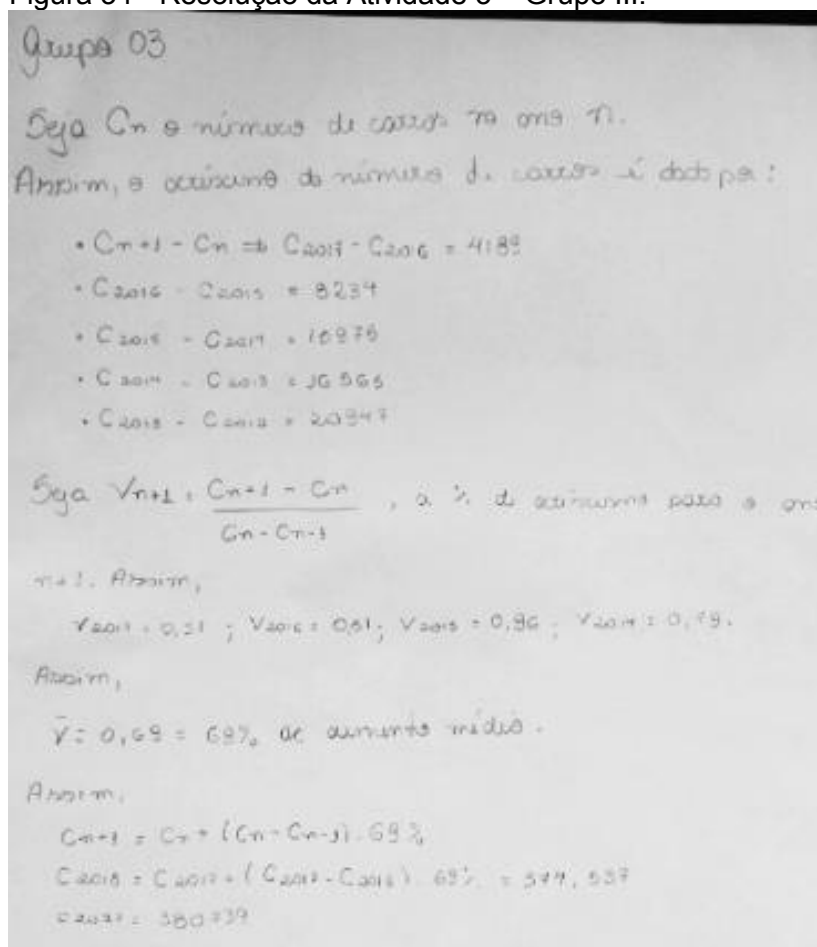 Figura 31 - Resolução da Atividade 3 – Grupo III.
Grupo 03
Seja Cn o número de carros no ano n.
Assim, o acréscimo do número de carros é dado por:
• Cn+1 - Cn ⇒ C2017 - C2016 = 4189
• C2016 - C2015 = 8234
• C2015 - C2014 =
• C2014 - C2013 = 16565
• C2013 - C2012 = 20947
Seja Vn+1 = Cn+1 - Cn / Cn - Cn-1 , a % de acréscimo para o ano
n+1. Assim,
V2017 = 0,51 ; V2016 = 0,51; V2015 = 0,96 ; V2014 = 0,79.
Assim,
V̄ = 0,69 = 69% de aumento médio.
Assim,
Cn+1 = Cn + (Cn - Cn-1) . 69%
C2018 = C2017 + (C2017 - C2016) . 69% =